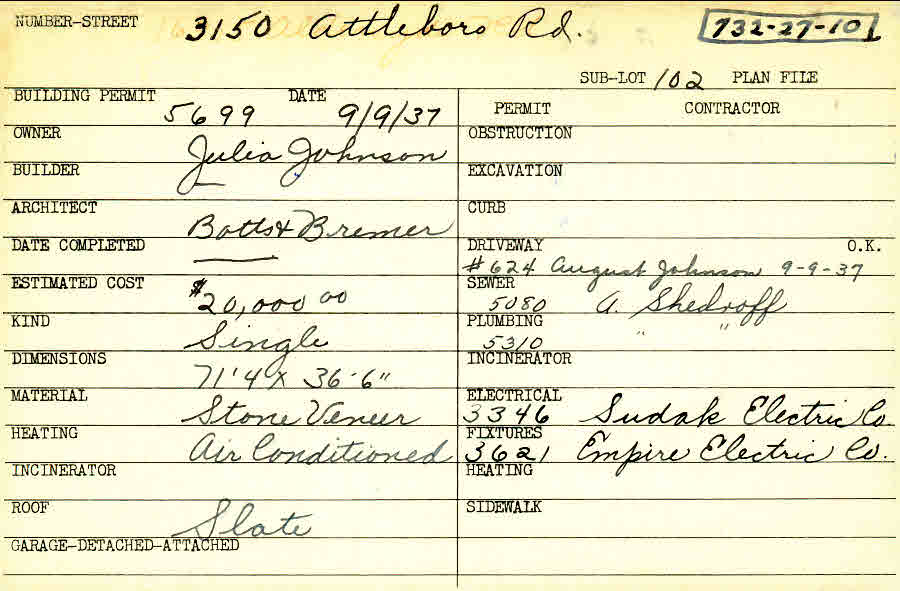 NUMBER-STREET 3150 Attleboro Rd. 732-27-10
SUB-LOT 102 PLAN FILE
BUILDING PERMIT 5699 DATE 9/9/37
PERMIT CONTRACTOR
OWNER Julia Johnson
OBSTRUCTION
BUILDER
EXCAVATION
ARCHITECT Botts & Bremer
CURB
DATE COMPLETED
DRIVEWAY O.K.
#624 August Johnson 9-9-37
ESTIMATED COST $20,000 00
SEWER 5080 A. Shedroff
KIND Single
PLUMBING 5310 " "
DIMENSIONS 71'4 X 36'-6"
INCINERATOR
MATERIAL Stone Veneer
ELECTRICAL 3346 Sudak Electric Co.
HEATING Air Conditioned
FIXTURES 3621 Empire Electric Co.
INCINERATOR
HEATING
ROOF Slate
SIDEWALK
GARAGE-DETACHED-ATTACHED